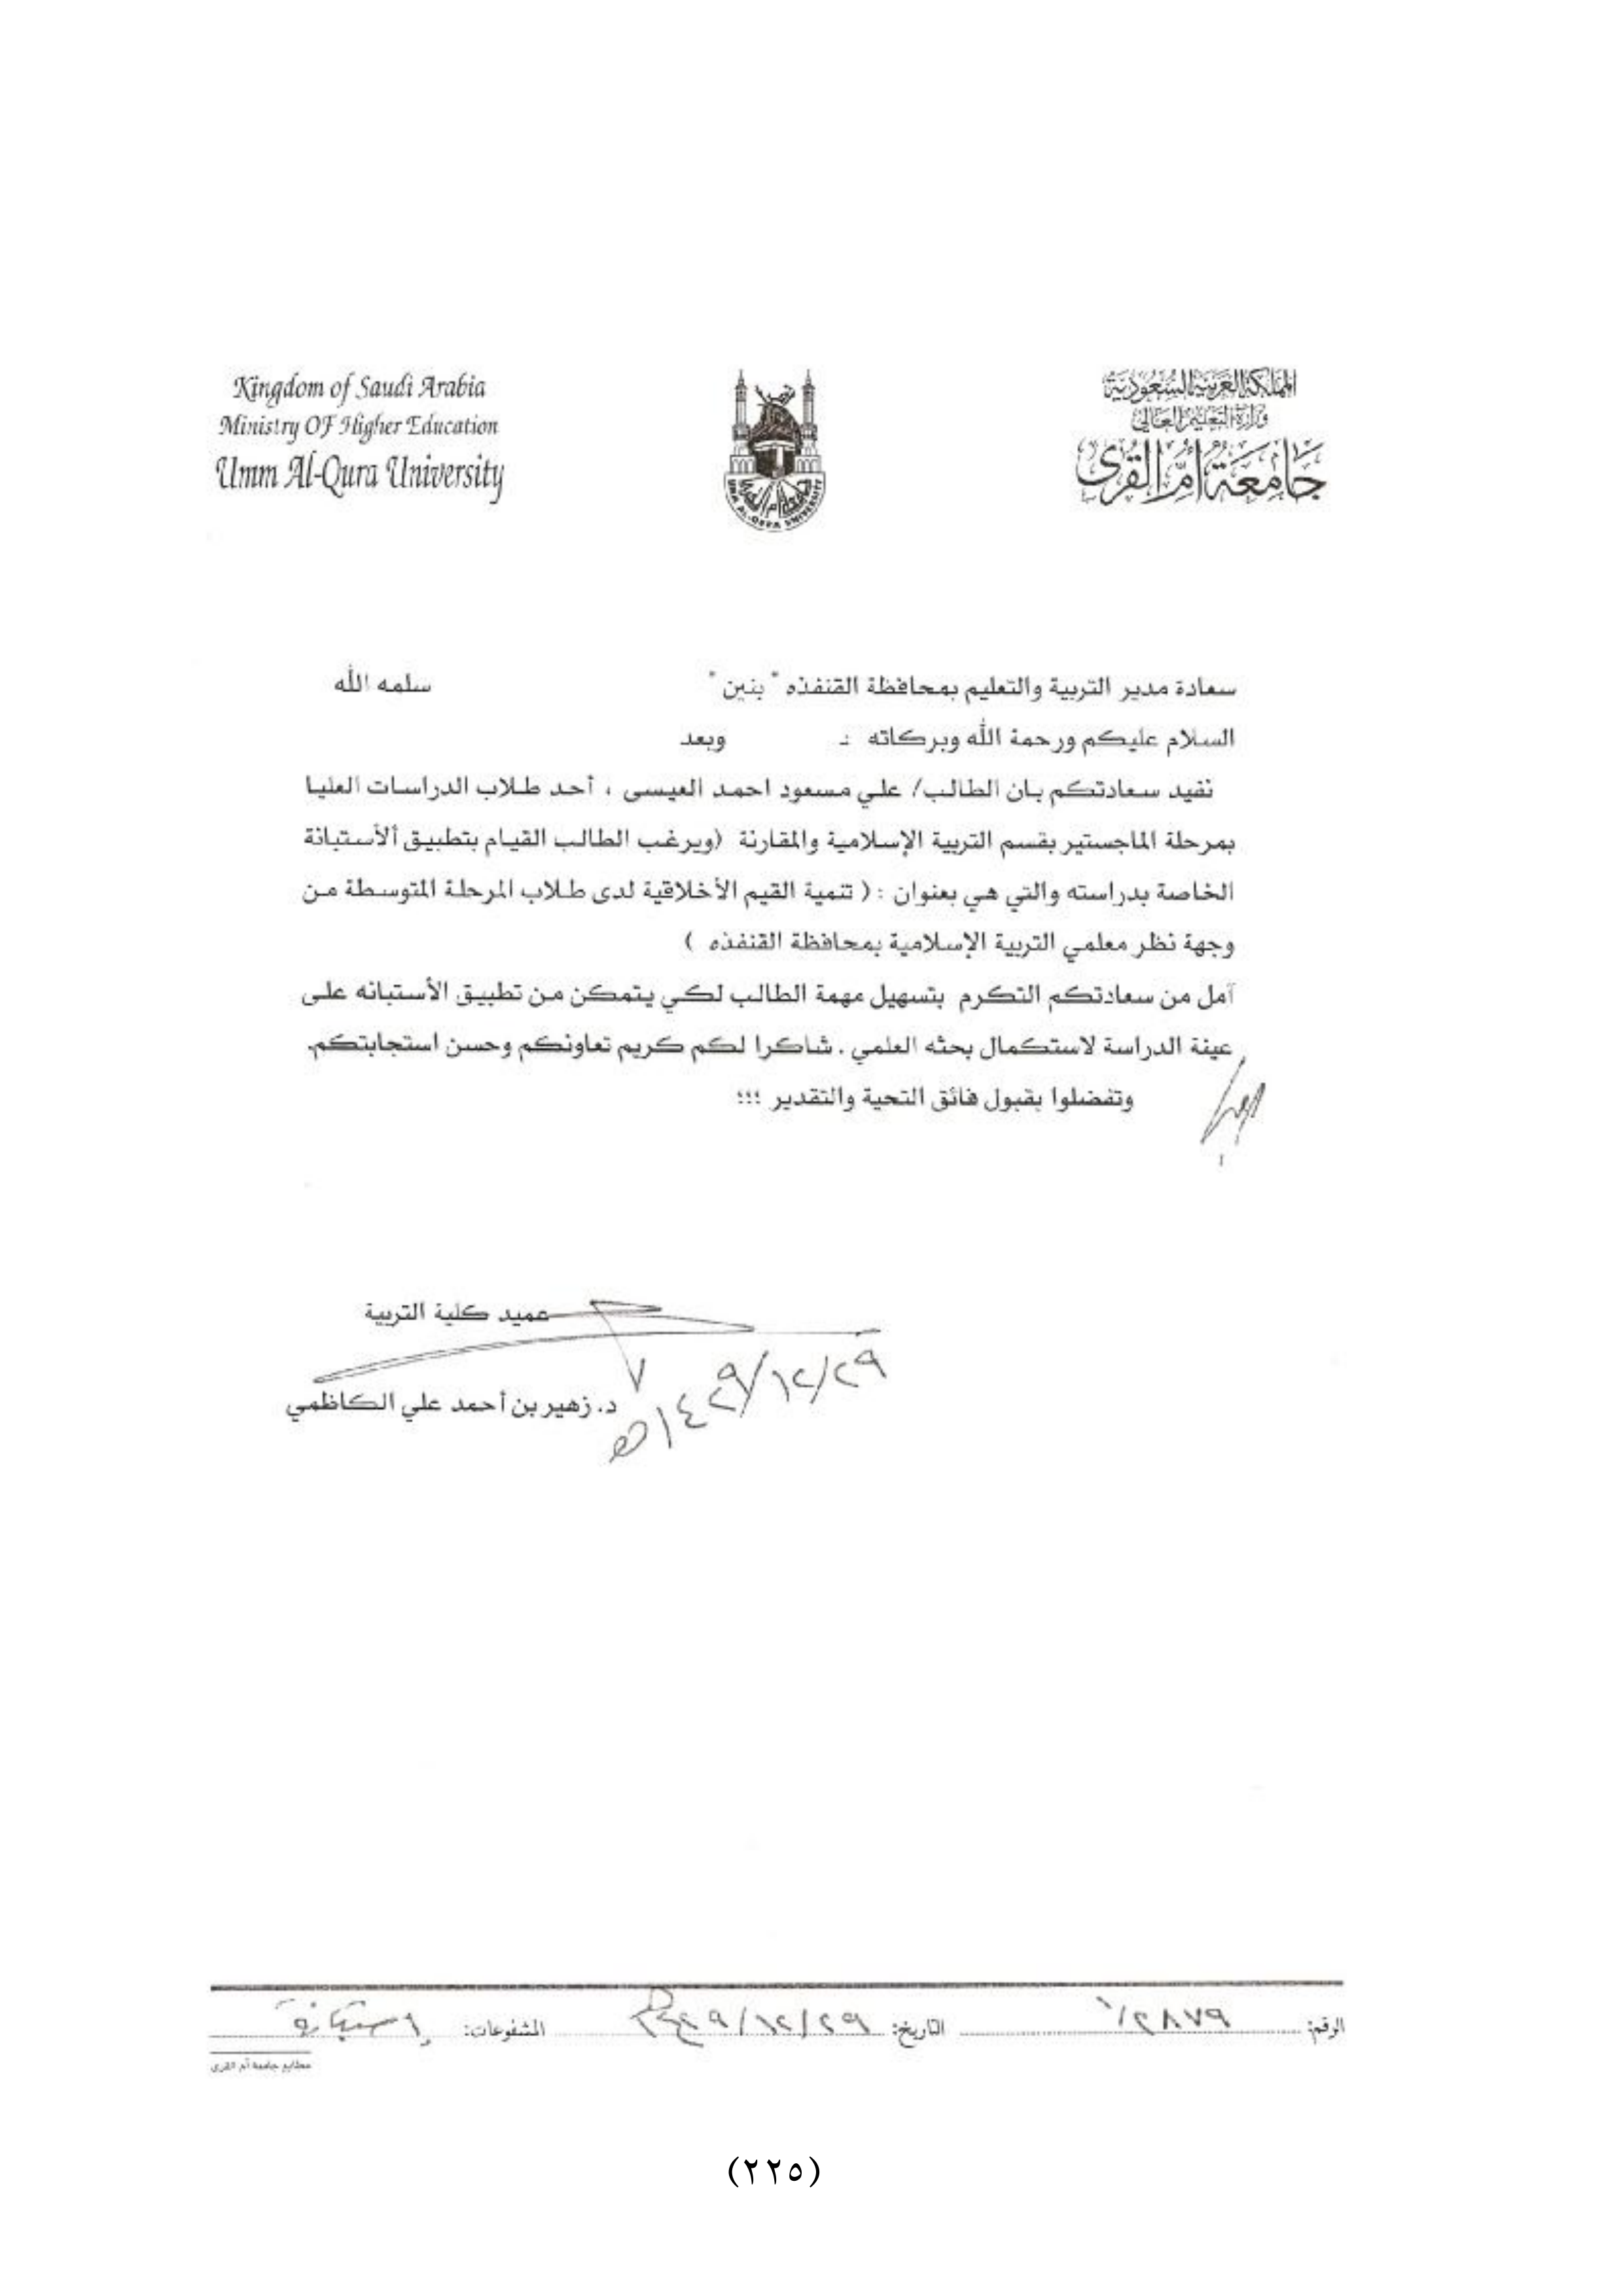 Kingdom of Saudi Arabia
Ministry OF Higher Education
Umm Al-Qura University
المملكة العربية السعودية
وزارة التعليم العالي
جامعة أم القرى
جامعة أم القرى
UMM AL-QURA UNIVERSITY
سعادة مدير التربية والتعليم بمحافظة القنفذه " بنين " سلمه الله
السلام عليكم ورحمة الله وبركاته :ـ وبعد
نفيد سعادتكم بان الطالب/ علي مسعود احمد العيسى ، أحد طلاب الدراسات العليا
بمرحلة الماجستير بقسم التربية الإسلامية والمقارنة (ويرغب الطالب القيام بتطبيق ألأستبانة
الخاصة بدراسته والتي هي بعنوان : ( تنمية القيم الأخلاقية لدى طلاب المرحلة المتوسطة من
وجهة نظر معلمي التربية الإسلامية بمحافظة القنفذه )
آمل من سعادتكم التكرم بتسهيل مهمة الطالب لكي يتمكن من تطبيق الأستبانه على
عينة الدراسة لاستكمال بحثه العلمي . شاكرا لكم كريم تعاونكم وحسن استجابتكم.
وتفضلوا بقبول فائق التحية والتقدير ؛؛؛
عميد كلية التربية
٢٩/١٢/١٤٢٩هـ
د. زهير بن أحمد علي الكاظمي
الرقم: ١/٢٨٧٩ التاريخ: ٢٩/١٢/ المشفوعات: إستبانة
مطابع جامعة أم القرى
(٢٢٥)